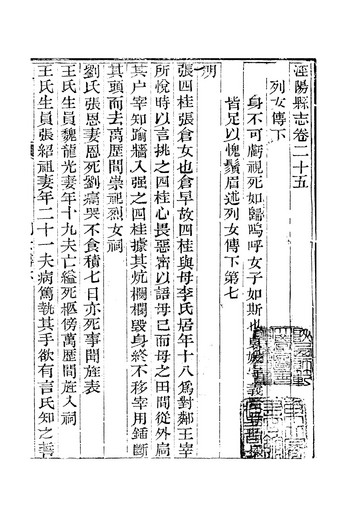 涇陽縣志卷二十五
列女傳下
身不可虧視死如歸嗚呼女子如斯也
皆足以愧鬚眉述列女傳下第七
明
張四桂張倉女也倉早故四桂與母李氏居年十八爲對鄰王宰
所悅時以言挑之四桂心畏惡密以語母已而母之田間從外扃
其户宰知踰牆入强之四桂據其炕欄欄毁身終不移宰用鍤斷
其頭而去萬歷間崇祀烈女祠
劉氏張恩妻恩死劉痛哭不食積七日亦死事聞旌表
王氏生員魏龍光妻年十九夫亡縊死柩傍萬歷間旌入祠
王氏生員張紹祖妻年二十一夫病篤執其手欲有言氏知之